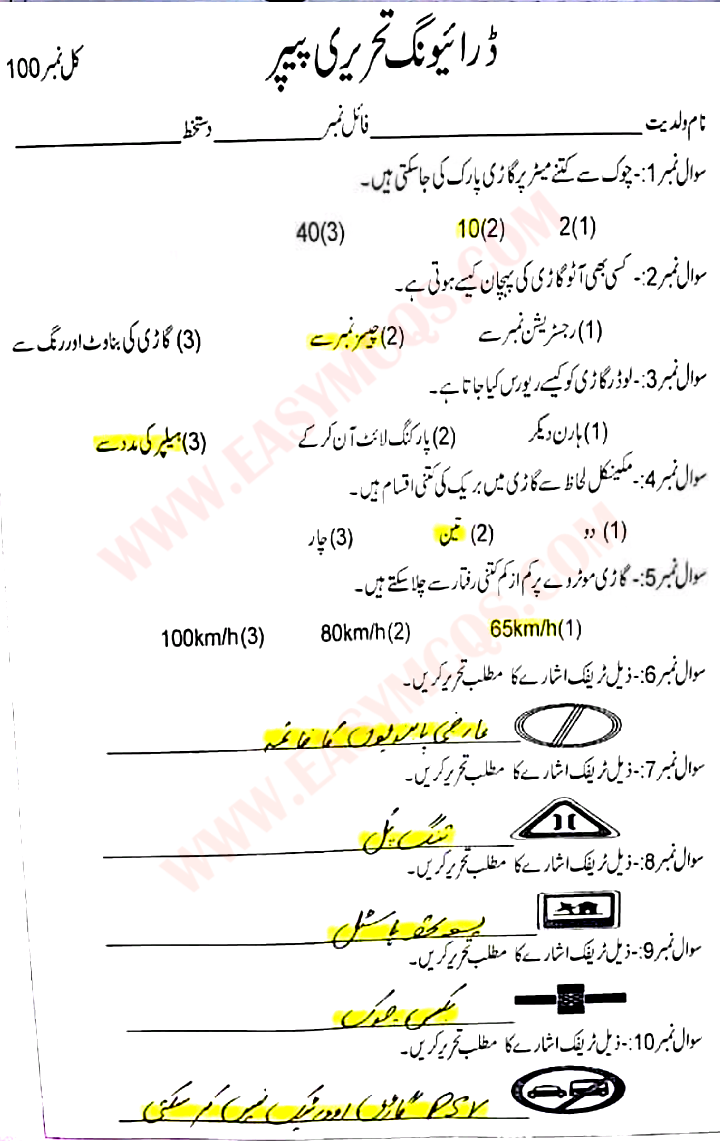 ڈرائیونگ تحریری پیپر
کل نمبر 100
نام ولدیت ____________ فائل نمبر ____________ دستخط ____________
سوال نمبر 1:- چوک سے کتنے میٹر پر گاڑی پارک کی جاسکتی ہیں۔
2(1) 10(2) 40(3)
سوال نمبر 2:- کسی بھی آٹو گاڑی کی پہچان کیسے ہوتی ہے۔
(1) رجسٹریشن نمبر سے (2) چیسز نمبر سے (3) گاڑی کی بناوٹ اور رنگ سے
سوال نمبر 3:- لوڈر گاڑی کو کیسے ریورس کیا جاتا ہے۔
(1) ہارن دیکر (2) پارکنگ لائٹ آن کر کے (3) ہیلپر کی مدد سے
سوال نمبر 4:- مکینکل لحاظ سے گاڑی میں بریک کی کتنی اقسام ہیں۔
(1) دو (2) تین (3) چار
سوال نمبر 5:- گاڑی موٹر وے پر کم از کم کتنی رفتار سے چلا سکتے ہیں۔
65km/h(1) 80km/h(2) 100km/h(3)
سوال نمبر 6:- ذیل ٹریفک اشارے کا مطلب تحریر کریں۔
عارضی پابندیوں کا خاتمہ
سوال نمبر 7:- ذیل ٹریفک اشارے کا مطلب تحریر کریں۔
تنگ پُل
سوال نمبر 8:- ذیل ٹریفک اشارے کا مطلب تحریر کریں۔
یوتھ ہاسٹل
سوال نمبر 9:- ذیل ٹریفک اشارے کا مطلب تحریر کریں۔
بکس چوک
سوال نمبر 10:- ذیل ٹریفک اشارے کا مطلب تحریر کریں۔
PSV گاڑی اوورٹیک نہیں کر سکتی
WWW.EASYMCQS.COM
WWW.EASYMCQS.COM